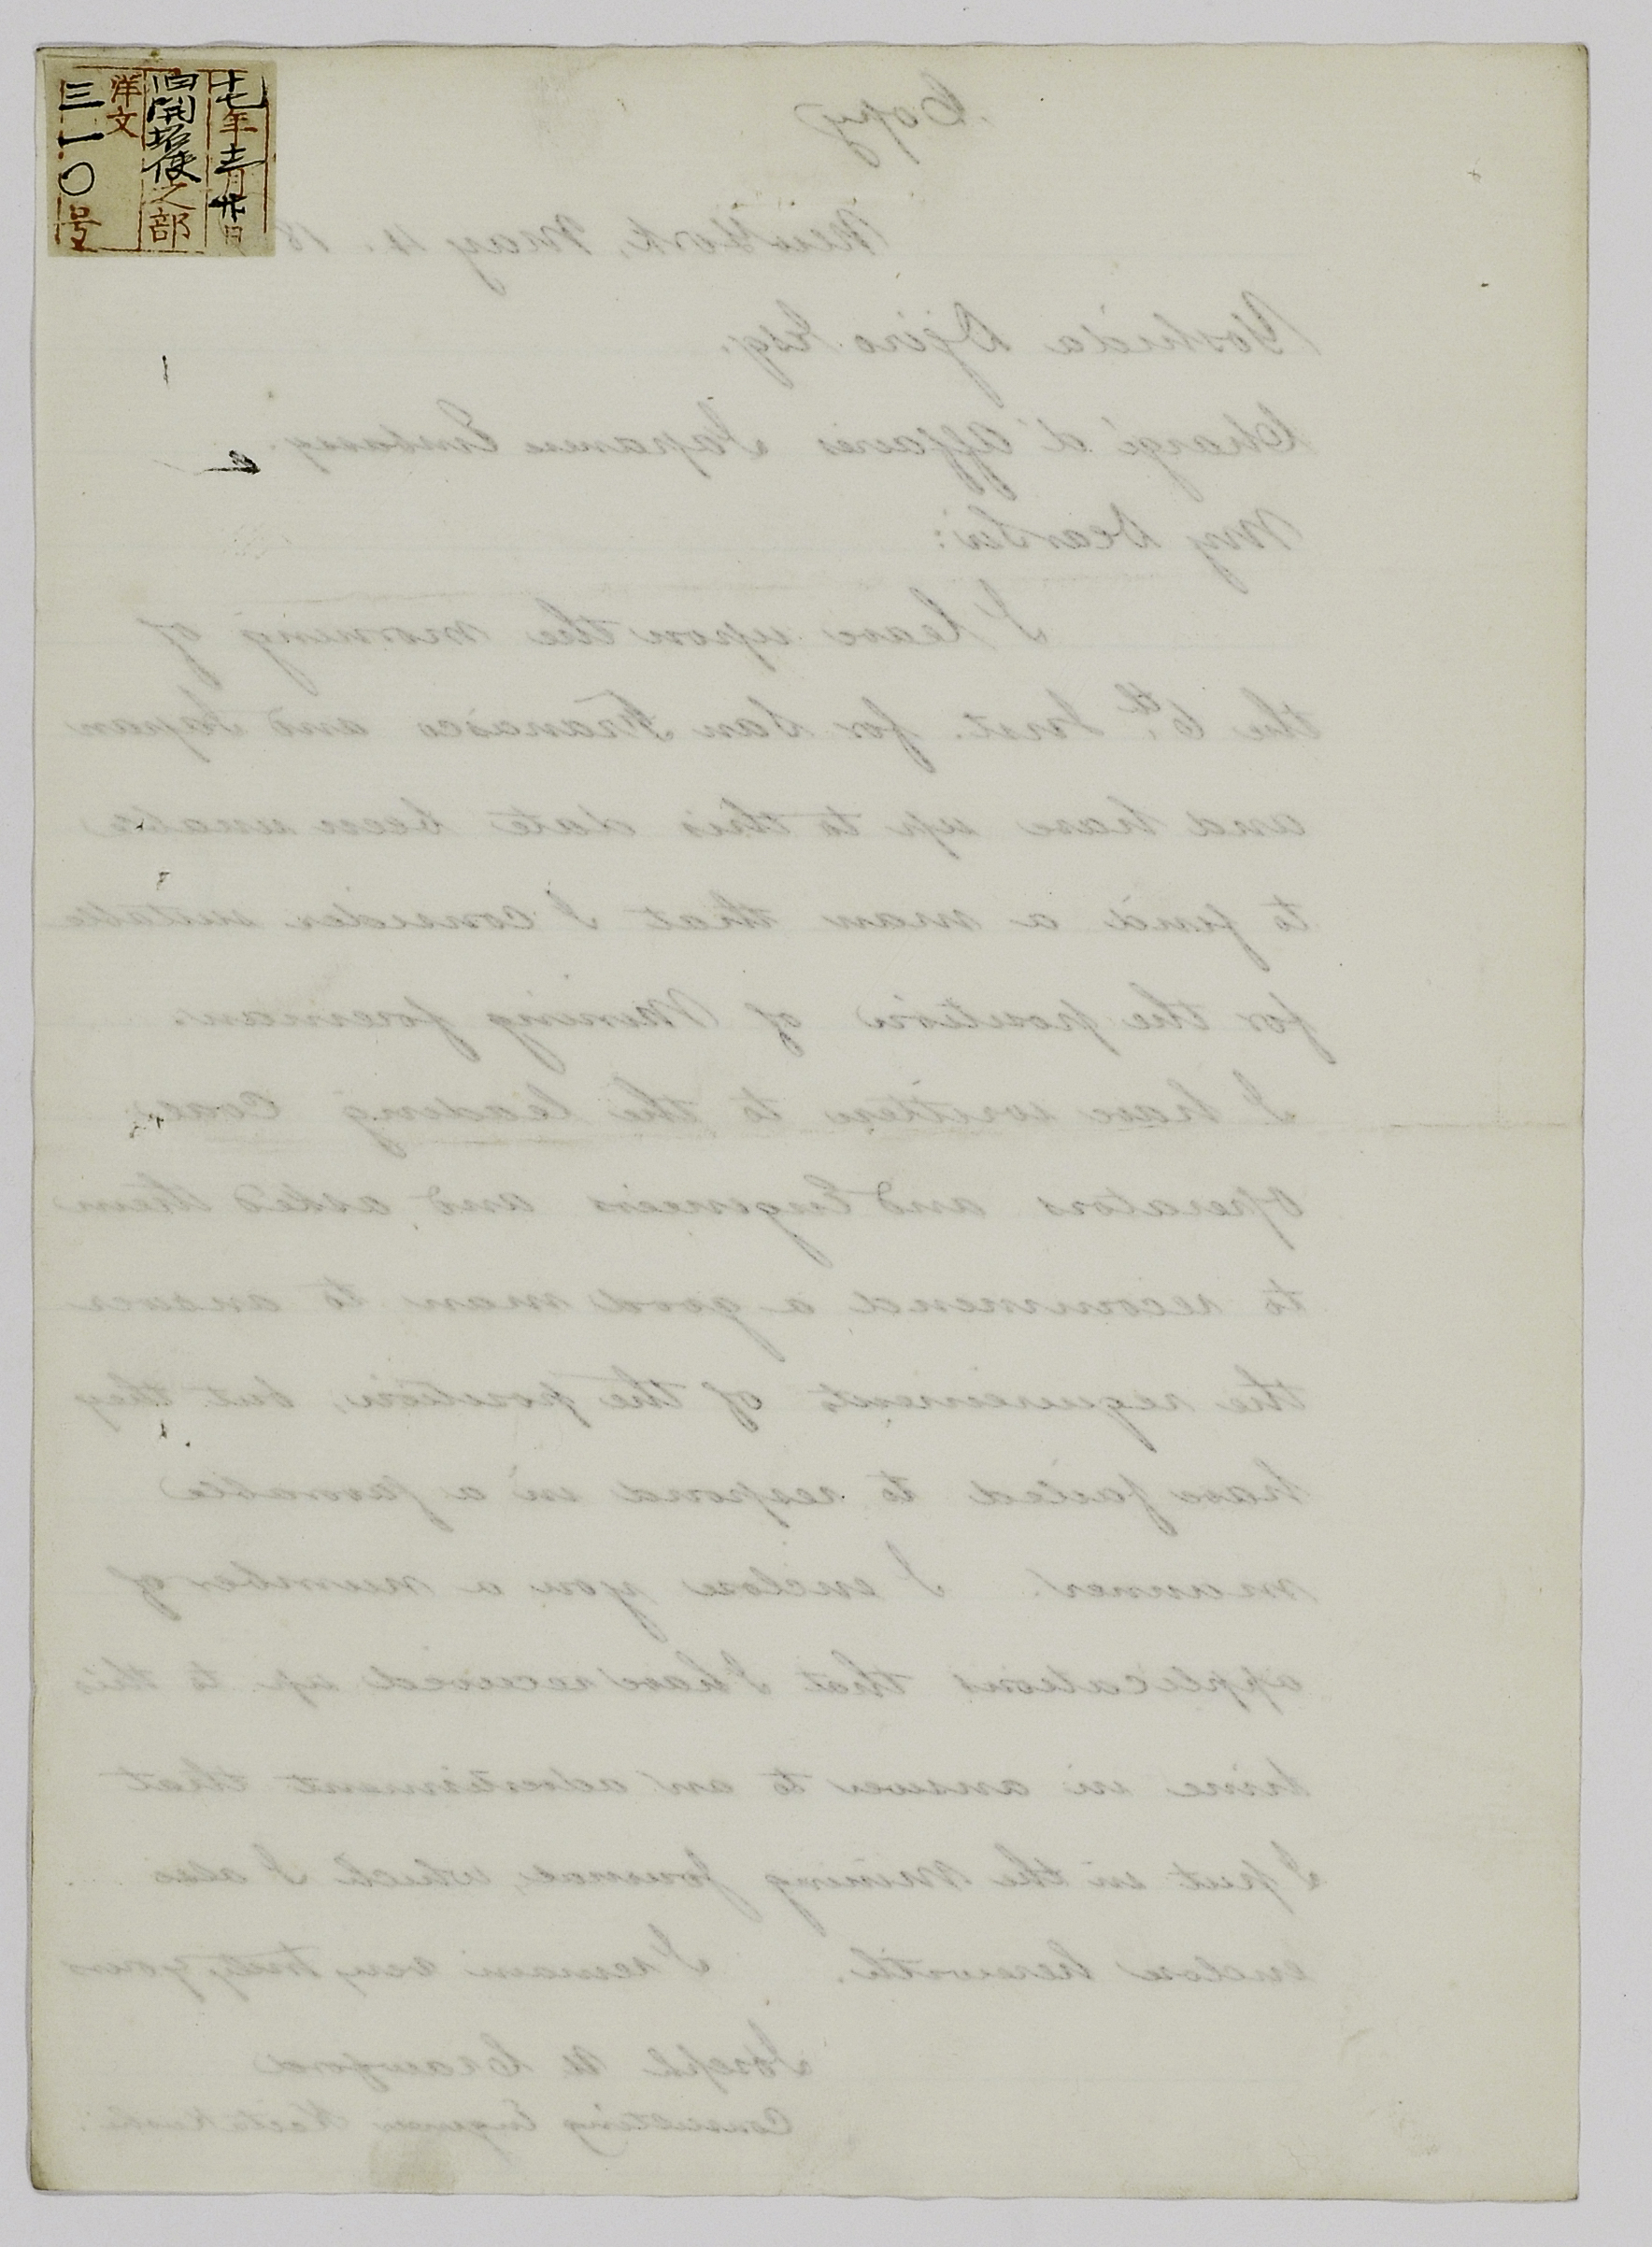 十七年十二月廿日
旧開拓使之部
洋文
三一〇号
Copy
New York, May 4. 18
Yoshida Djiro Esq.
Chargé d'Affaires Japanese Embassy.
My Dear Sir:
I leave upon the morning of
the 6th. Inst. for San Francisco and Japan
and have up to this date been unable
to find a man that I consider suitable
for the position of Mining foreman.
I have written to the leading Coal
operators and Engineers and asked them
to recommend a good man to answer
the requirements of the position, but they
have failed to respond in a favorable
manner. I enclose you a number of
applications that I have received up to this
time in answer to an advertisement that
I put in the Mining Journal, which I also
enclose herewith. I remain very truly yours
Joseph U Crawford
Consulting Engineer Kaitakushi.